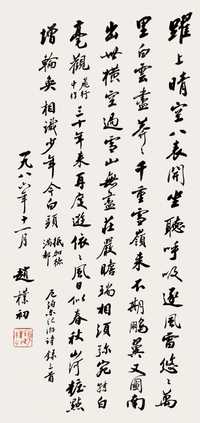 躍上晴空八表開坐聽呼吸逐風雷悠悠萬
里白雲盡莽莽千重雪嶺來不期鵬翼又圖南
出世橫空過雪山無盡莊嚴瞻瑞相須彌宛白
毫觀 飛行中作 三十年來再度遊依依風日似春秋山河粧點
增輪奐相識少年今白頭 抵加德滿都 尼泊爾紀游詩錄三首
一九八六年十一月 趙樸初